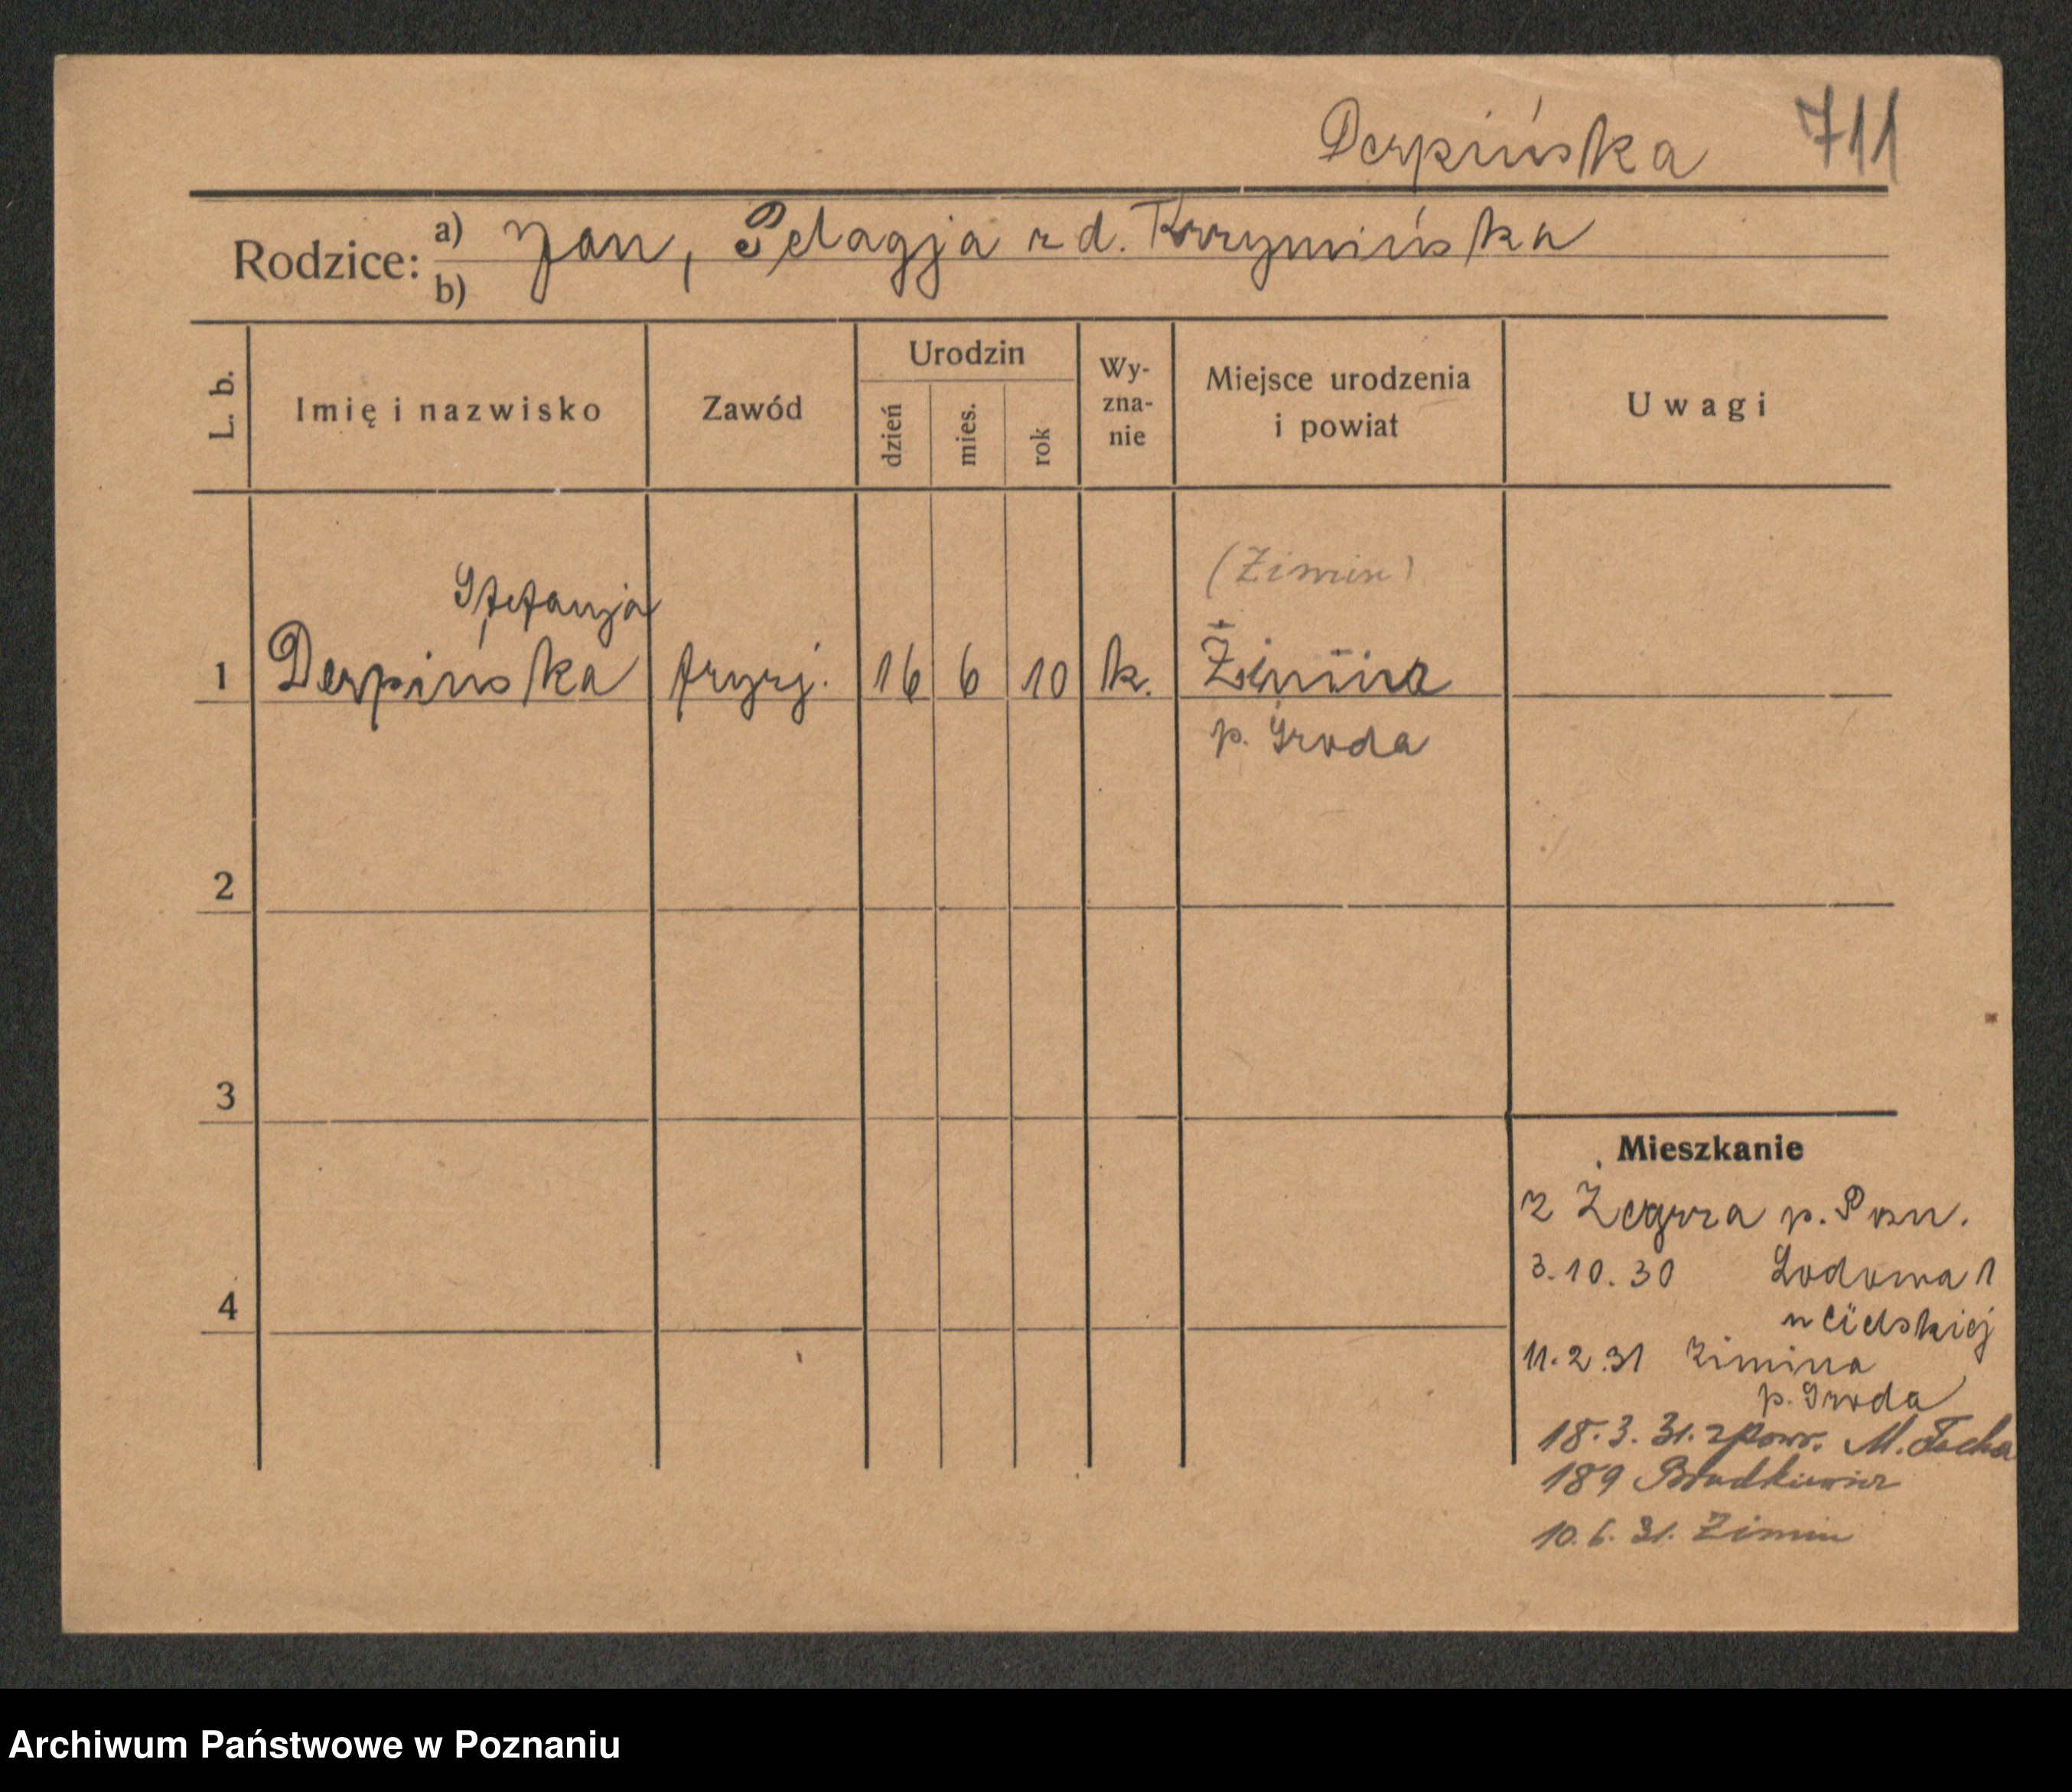 Derpińska 711
Rodzice: a) Jan, Pelagja z d. Krzymińska
b)
L. b. Imię i nazwisko Zawód Urodzin dzień mies. rok Wy-zna-nie Miejsce urodzenia i powiat Uwagi
(Zimin)
Stefanja
1 Derpińska fryzj. 16 6 10 k. Zimina
p. Środa
2
3
4
Mieszkanie
z Żegrza p. Pozn.
3.10.30 Lodowa 1
u Cielskiej
11.2.31 Zimina
p. Środa
18.3.31. zpow. M. Focha
189 Brudkiewicz
10.6.31. Zimin
Archiwum Państwowe w Poznaniu